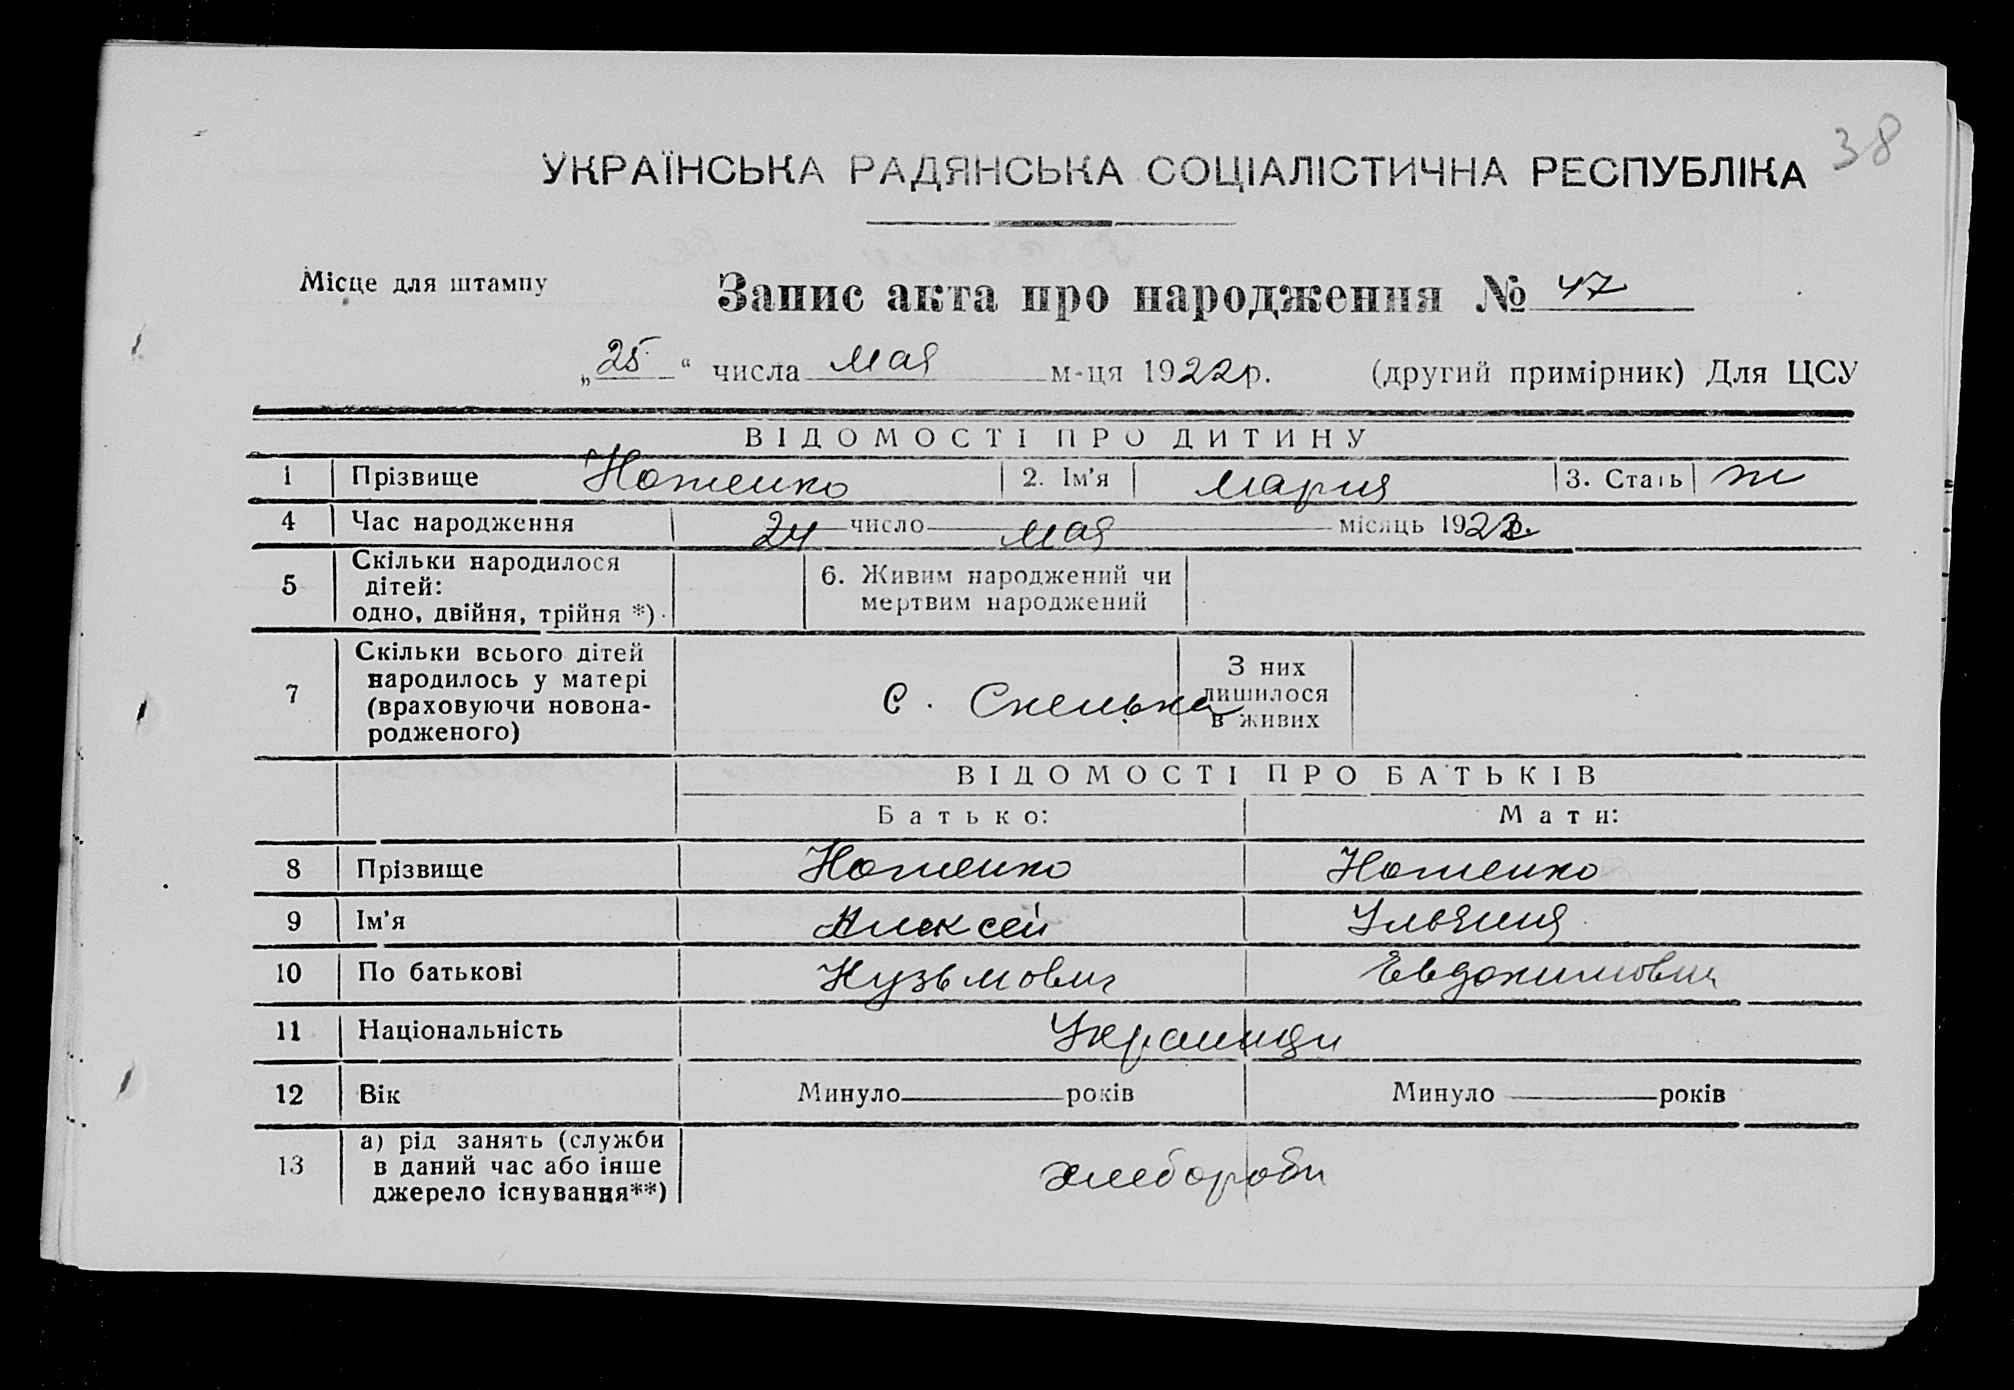 38
УКРАЇНСЬКА РАДЯНСЬКА СОЦІАЛІСТИЧНА РЕСПУБЛІКА
Місце для штампу
Запис акта про народження № 47
„25“ числа мая м-ця 1922р. (другий примірник) Для ЦСУ
ВІДОМОСТІ ПРО ДИТИНУ
1 Прізвище Ноженко 2. Ім’я Мария 3. Стать ж
4 Час народження 24 число мая місяць 1922
5 Скільки народилося дітей: одно, двійня, трійня *) 6. Живим народжений чи мертвим народжений
7 Скільки всього дітей народилось у матері (враховуючи новонародженого) с. Скелька З них лишилося в живих
ВІДОМОСТІ ПРО БАТЬКІВ
Батько: Мати:
8 Прізвище Ноженко Ноженко
9 Ім’я Алексей Ульяния
10 По батькові Кузьмович Евдокимовна
11 Національність Украинци
12 Вік Минуло років Минуло років
13 а) рід занять (служби в даний час або інше джерело існування**) хлебороби